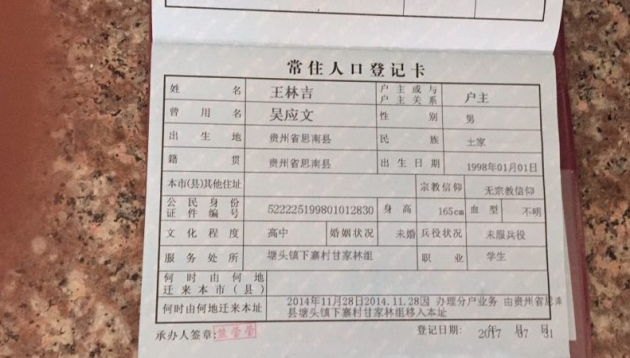 常住人口登记卡
姓名 王林吉 户主或与户主关系 户主
曾用名 吴应文 性别 男
出生地 贵州省思南县 民族 土家
籍贯 贵州省思南县 出生日期 1998年01月01日
本市(县)其他住址 宗教信仰 无宗教信仰
公民身份证件编号 522225199801012830 身高 165cm 血型 不明
文化程度 高中 婚姻状况 未婚 兵役状况 未服兵役
服务处所 塘头镇下寨村甘家林组 职业 学生
何时由何地迁来本市(县)
何时由何地迁来本址 2014年11月28日2014.11.28因 办理分户业务 由贵州省思南
县塘头镇下寨村甘家林组移入本址
承办人签章: 登记日期: 2017年07月31日